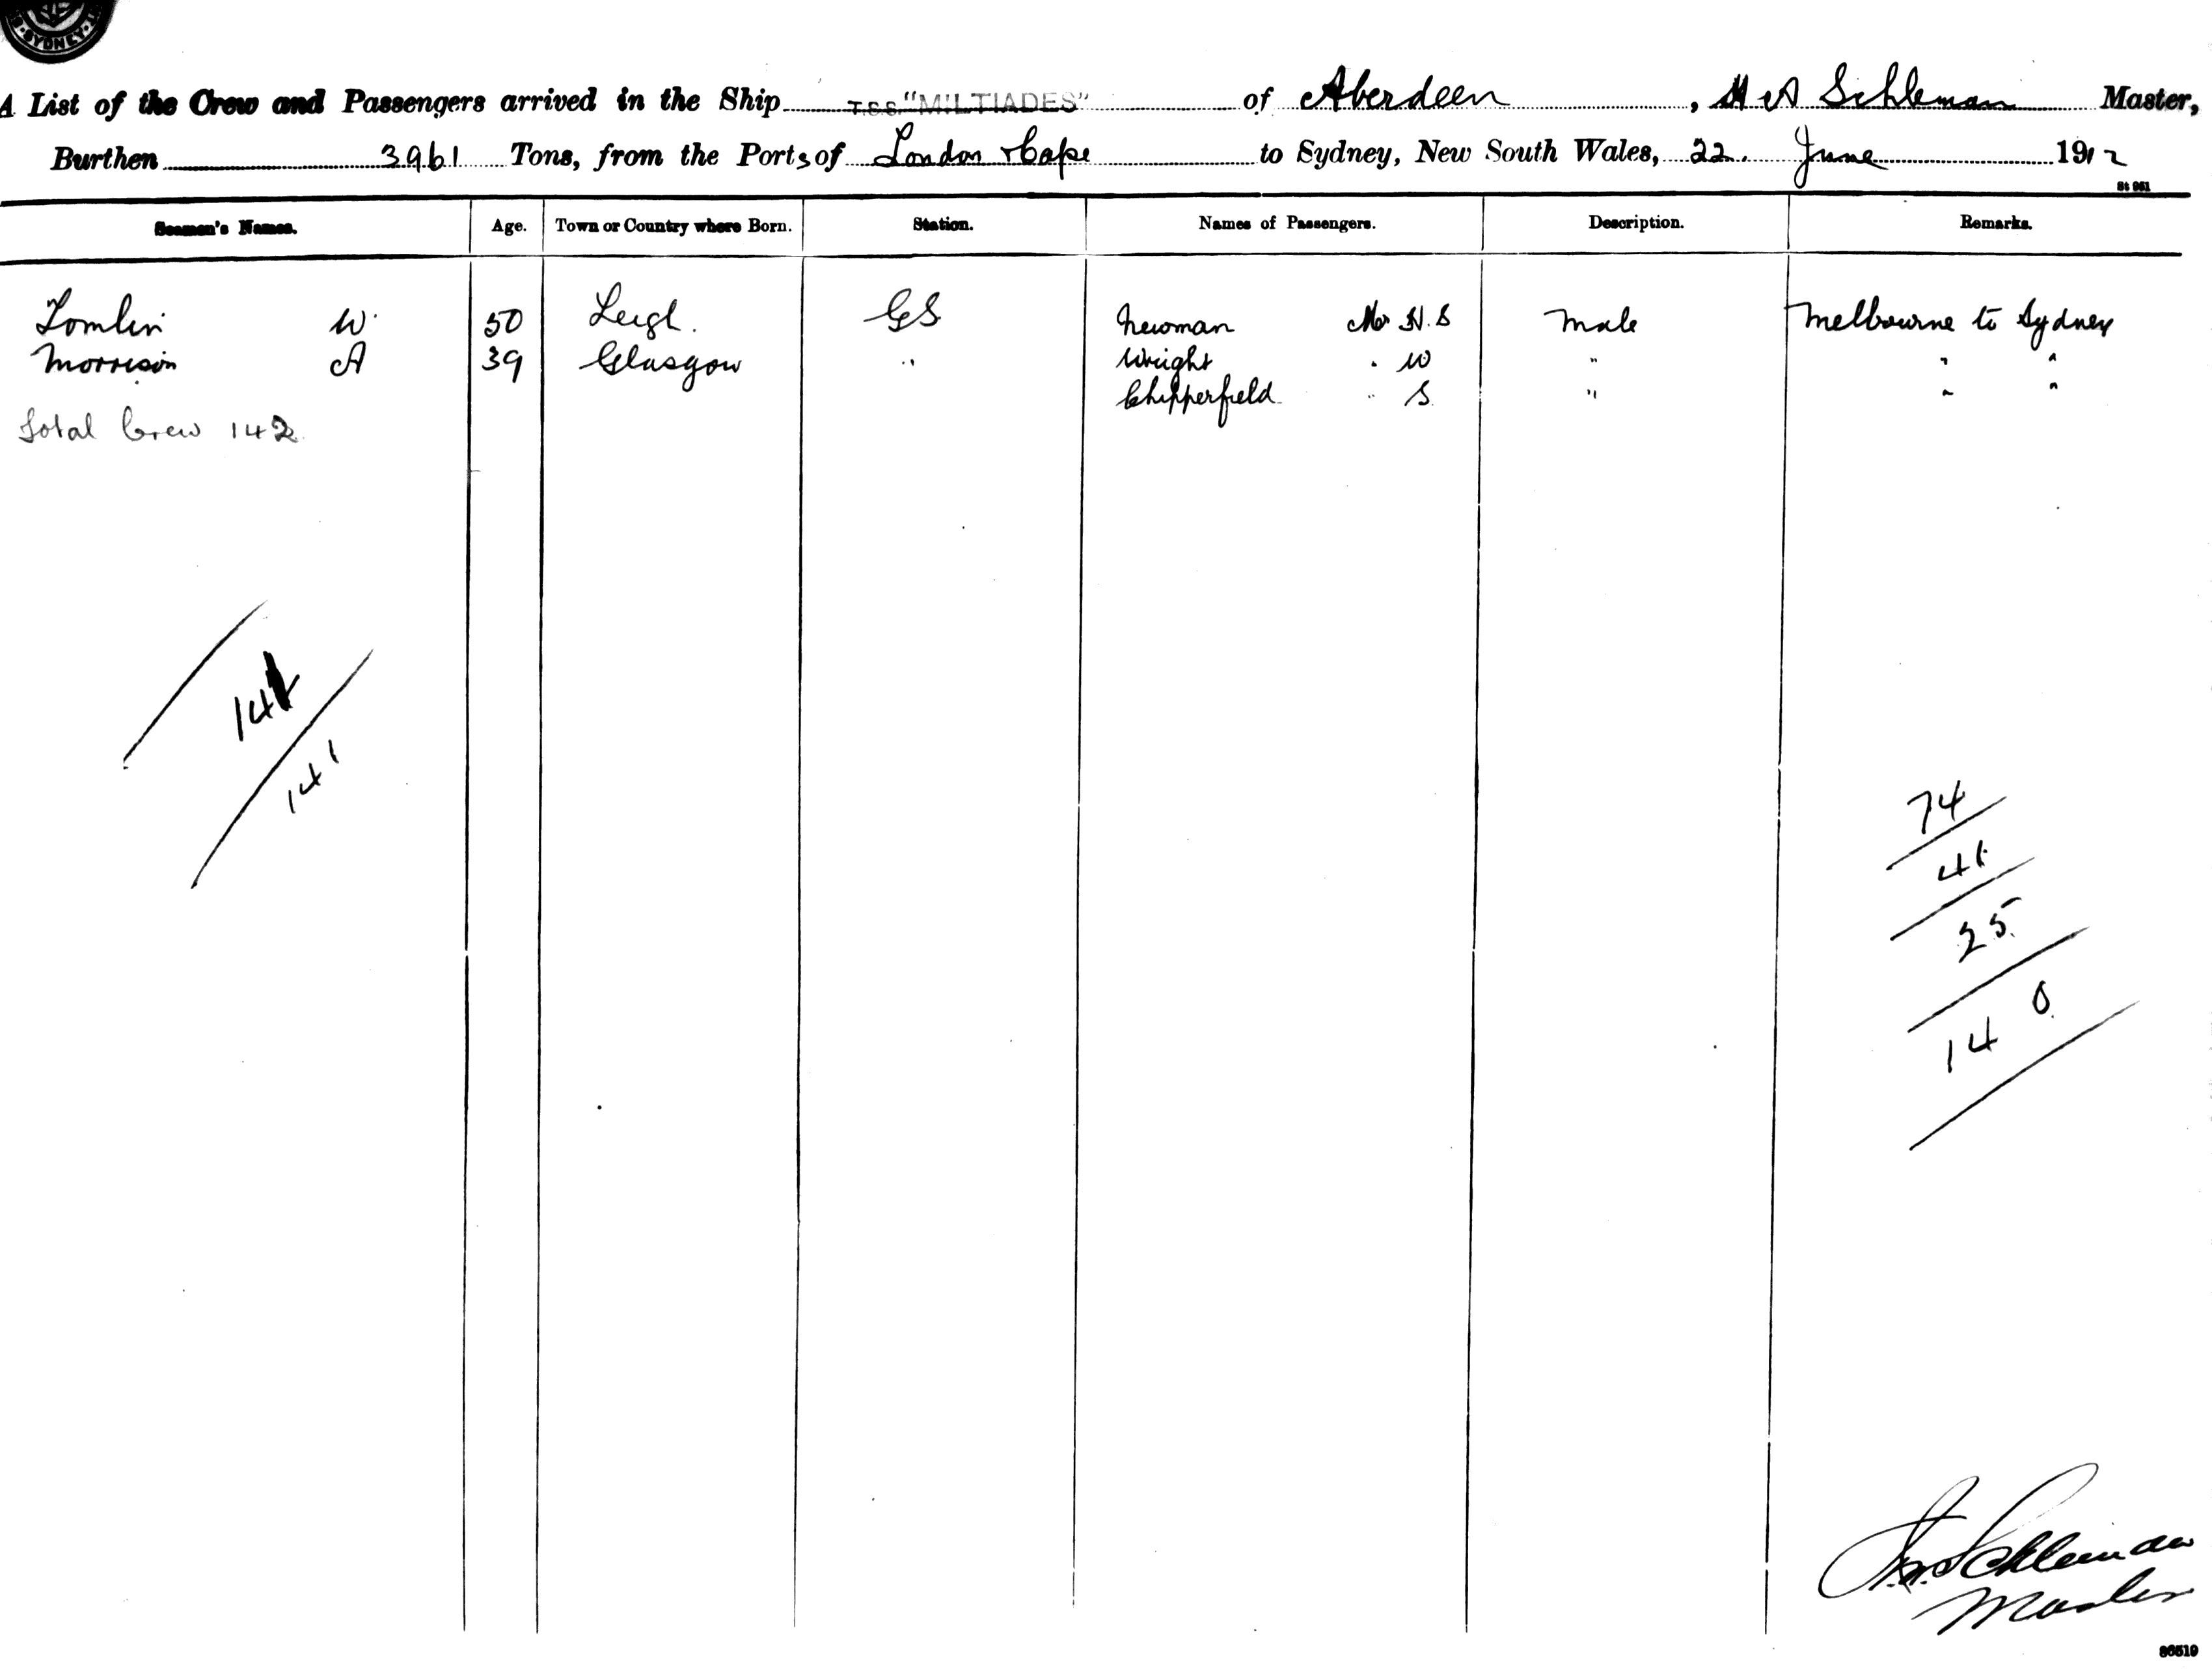 SYDNEY
A List of the Crew and Passengers arrived in the Ship T.S.S. "MILTIADES" of Aberdeen, A Schleman Master,
Burthen 3961 Tons, from the Ports of London & Cape to Sydney, New South Wales, 22. June 1912
St 961
Seamen's Names. Age. Town or Country where Born. Station. Names of Passengers. Description. Remarks.
Tomlin W. 50 Leigh. GS Newman Mr H.S Male Melbourne to Sydney
Morrison A 39 Glasgow " Wright " W " " "
Chipperfield " S " " "
Total Crew 142
141
74
41
25
140
Schleman
Master
86519